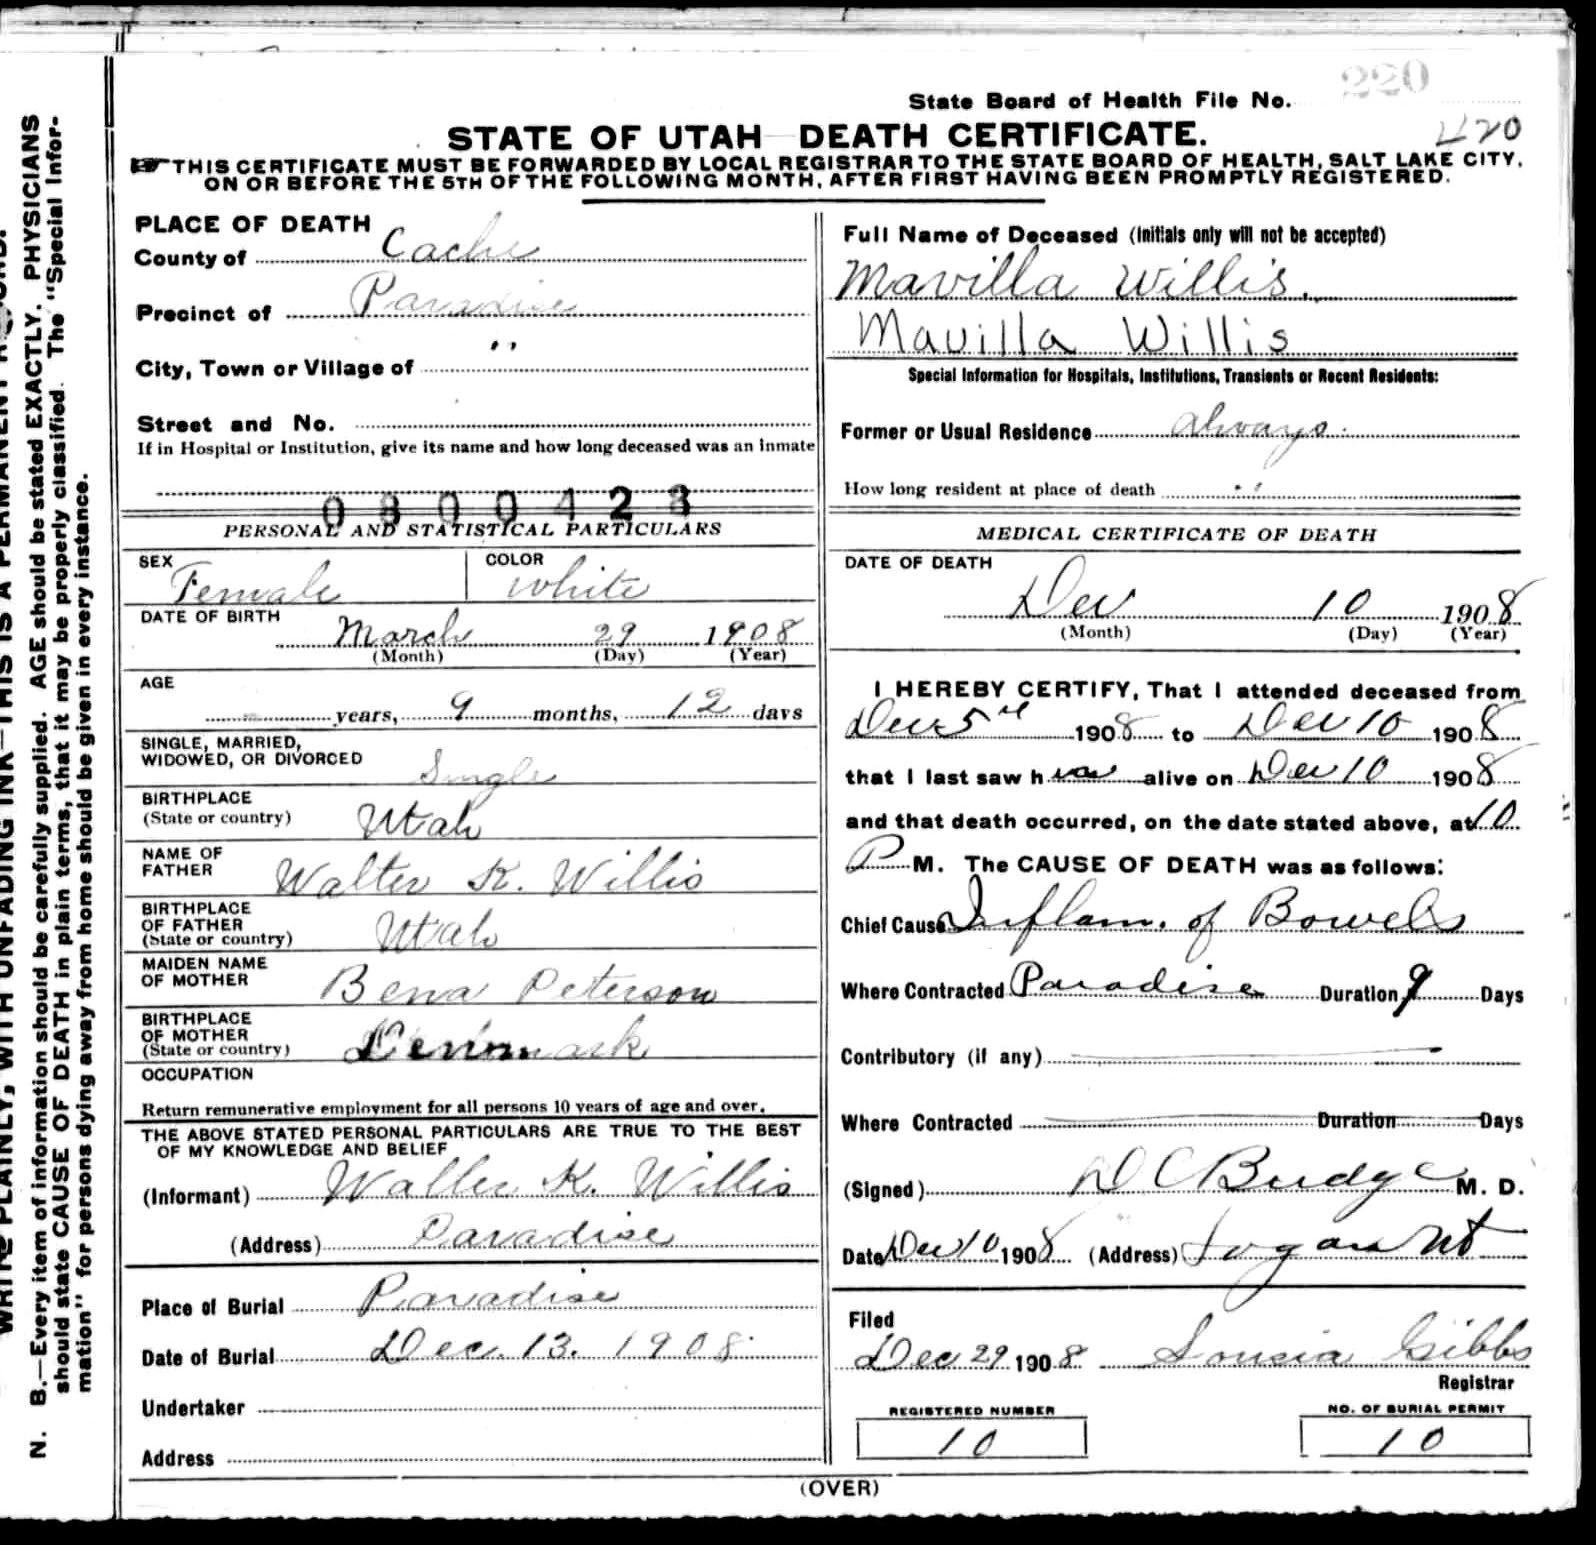 WRITE PLAINLY, WITH UNFADING INK—THIS IS A PERMANENT
N. B.—Every item of information should be carefully supplied. AGE should be stated EXACTLY. PHYSICIANS
should state CAUSE OF DEATH in plain terms, that it may be properly classified. The "Special Infor-
mation" for persons dying away from home should be given in every instance.
220
State Board of Health File No.
420
STATE OF UTAH DEATH CERTIFICATE.
THIS CERTIFICATE MUST BE FORWARDED BY LOCAL REGISTRAR TO THE STATE BOARD OF HEALTH, SALT LAKE CITY,
ON OR BEFORE THE 5TH OF THE FOLLOWING MONTH, AFTER FIRST HAVING BEEN PROMPTLY REGISTERED.
PLACE OF DEATH
County of Cache
Precinct of Paradise
City, Town or Village of "
Street and No.
If in Hospital or Institution, give its name and how long deceased was an inmate
0800423
PERSONAL AND STATISTICAL PARTICULARS
SEX Female COLOR White
DATE OF BIRTH
March 29 1908
(Month) (Day) (Year)
AGE
years, 9 months, 12 days
SINGLE, MARRIED,
WIDOWED, OR DIVORCED Single
BIRTHPLACE
(State or country) Utah
NAME OF
FATHER Walter K. Willis
BIRTHPLACE
OF FATHER
(State or country) Utah
MAIDEN NAME
OF MOTHER Bena Peterson
BIRTHPLACE
OF MOTHER
(State or country) Denmark
OCCUPATION
Return remunerative employment for all persons 10 years of age and over.
THE ABOVE STATED PERSONAL PARTICULARS ARE TRUE TO THE BEST
OF MY KNOWLEDGE AND BELIEF
(Informant) Walter K. Willis
(Address) Paradise
Place of Burial Paradise
Date of Burial Dec. 13. 1908.
Undertaker
Address
Full Name of Deceased (Initials only will not be accepted)
Mavilla Willis.
Mavilla Willis
Special Information for Hospitals, Institutions, Transients or Recent Residents:
Former or Usual Residence always.
How long resident at place of death "
MEDICAL CERTIFICATE OF DEATH
DATE OF DEATH
Dec 10 1908
(Month) (Day) (Year)
I HEREBY CERTIFY, That I attended deceased from
Dec 5th 1908 to Dec 10 1908
that I last saw her alive on Dec 10 1908
and that death occurred, on the date stated above, at 10
P M. The CAUSE OF DEATH was as follows:
Chief Cause Inflam. of Bowels
Where Contracted Paradise Duration 9 Days
Contributory (if any)
Where Contracted Duration Days
(Signed) D C Budge M. D.
Date Dec 10 1908 (Address) Logan Ut
Filed
Dec 29 1908 Lousia Gibbs
Registrar
REGISTERED NUMBER
10
NO. OF BURIAL PERMIT
10
(OVER)